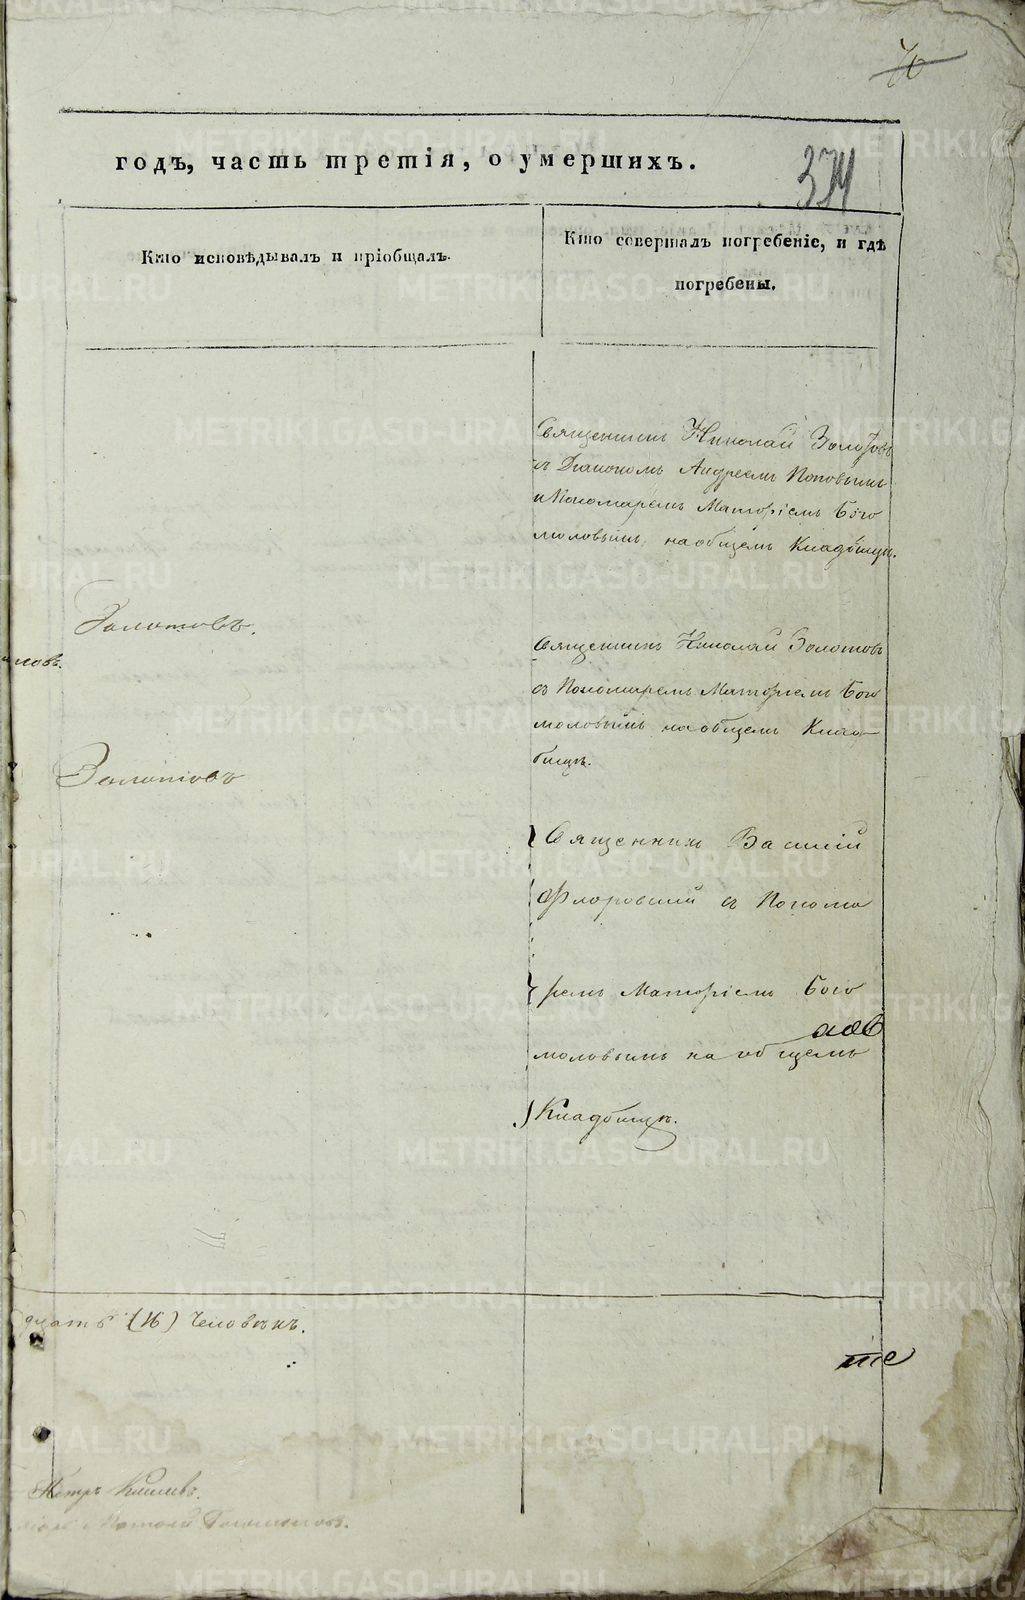 70
годъ, часть третія, о умершихъ.
374
Кто исповѣдывалъ и пріобщалъ.
Кто совершалъ погребеніе, и гдѣ
погребены.
Священникъ Николай Золотовъ
съ Діакономъ Андреемъ Поповымъ
и Пономаремъ Маторіемъ Бого
моловымъ, на общемъ Кладбищѣ.
Золотовъ.
ловъ.
Священникъ Николай Золотовъ
съ Пономаремъ Маторіемъ Бого
моловымъ на общемъ Клад
бищѣ.
Золотовъ
Священникъ Василій
Флоровскій съ Понома
ремъ Маторіемъ Бого
моловымъ на общемъ
Кладбищѣ.
дцать (16) Человѣкъ.
Петръ
METRIKI.GASO-URAL.RU